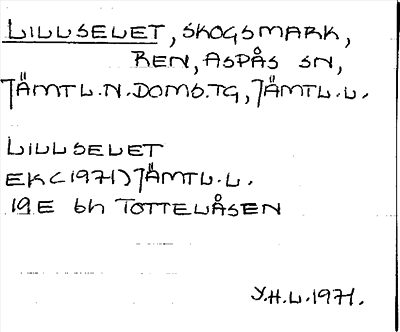 LILLSELET, SKOGSMARK,
REN, ASPÅS SN,
JÄMTL.N.DOMS.TG, JÄMTL.L.
LILLSELET
EK (1971) JÄMTL.L.
19E 6h TOTTELÅSEN
Y.H.L.1971.